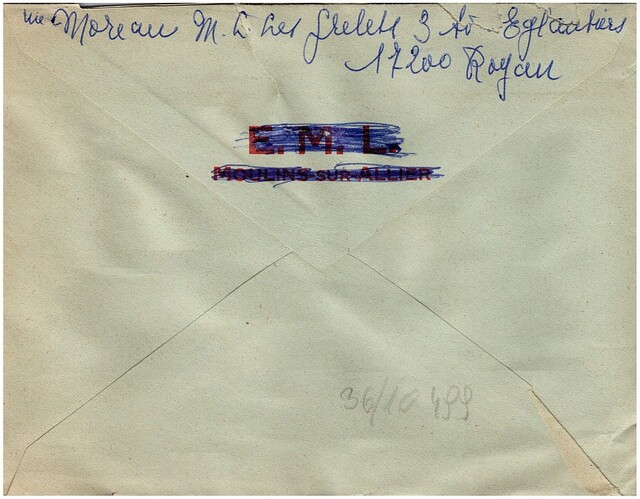 Moreau M. L. Les Grelets 3 Av Eglantiers
17200 Royan
E. M. L.
MOULINS-SUR-ALLIER
36/10 499